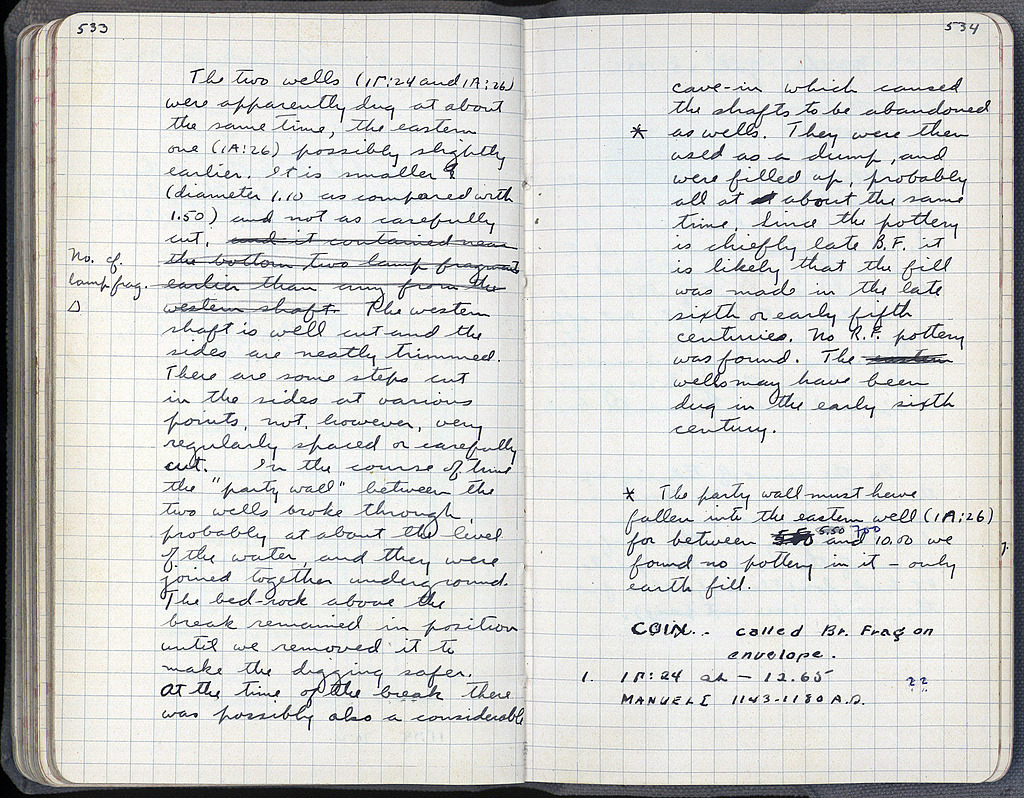 533
The two wells (1Γ:24 and 1Α:26)
were apparently dug at about
the same time, the eastern
one (1Α:26) possibly slightly
earlier. It is smaller
(diameter 1.10 as compared with
1.50) and not as carefully
cut, and it contained near
the bottom two lamp fragments
earlier than any from the
western shaft. The western
shaft is well cut and the
sides are neatly trimmed.
There are some steps cut
in the sides at various
points, not, however, very
regularly spaced or carefully
cut. In the course of time
the "party wall" between the
two wells broke through,
probably at about the level
of the water, and they were
joined together underground.
The bed-rock above the
break remained in position
until we removed it to
make the digging safer.
At the time of the break there
was possibly also a considerable
No. cf.
lamp frag.
Δ
534
cave-in which caused
the shafts to be abandoned
* as wells. They were then
used as a dump, and
were filled up, probably
all at about the same
time. Since the pottery
is chiefly late B.F. it
is likely that the fill
was made in the late
sixth or early fifth
centuries. No R.F. pottery
was found. The eastern
wells may have been
dug in the early sixth
century.
* The party wall must have
fallen into the eastern well (1Α:26)
for between 5.50 7.00 and 10.00 we
found no pottery in it – only
earth fill.
COIN.. called Br. Frag on
envelope.
1. 1Γ:24 at – 12.65 ??
MANUEL I 1143-1180 A.D.